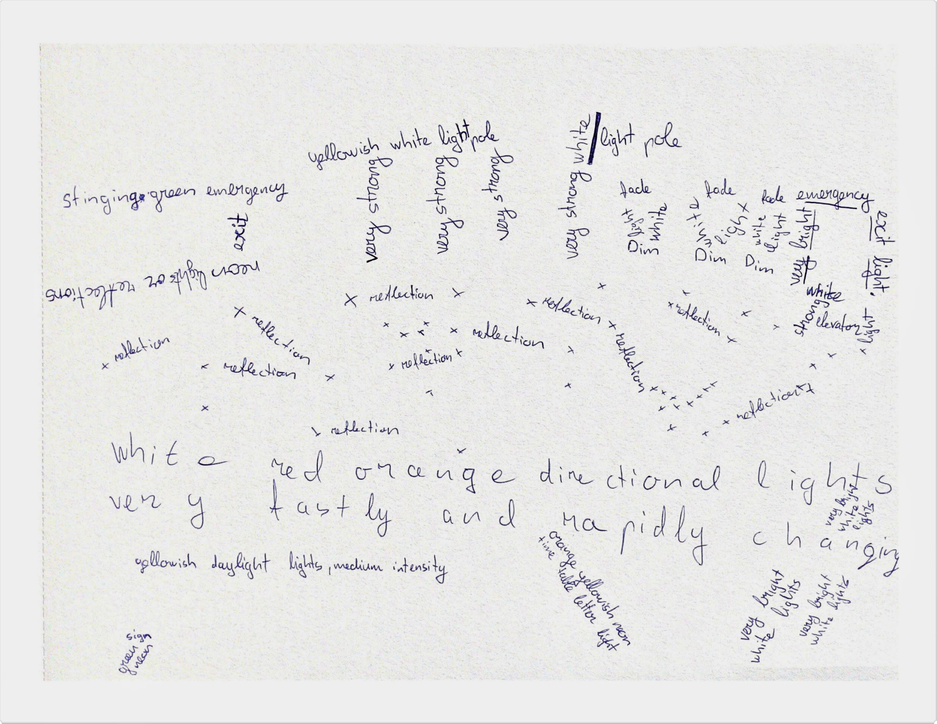 yellowish white light pole
very strong
very strong
very strong
very strong white
light pole
stinging green emergency
exit
neon lights or reflections
fade
Dim light white
fade
Dim white light
fade
Dim white light
emergency
very bright
exit light.
white
strong elevator light
reflection
reflection
reflection
reflection
reflection
reflection
reflection
reflection
reflection
reflection
reflection
reflection
white red orange directional lights
very fastly and rapidly changing
very bright
white light
lights
yellowish daylight lights, medium intensity
orange yellowish neon
time table letter light
very bright
white lights
very bright
white lights
green sign
neon